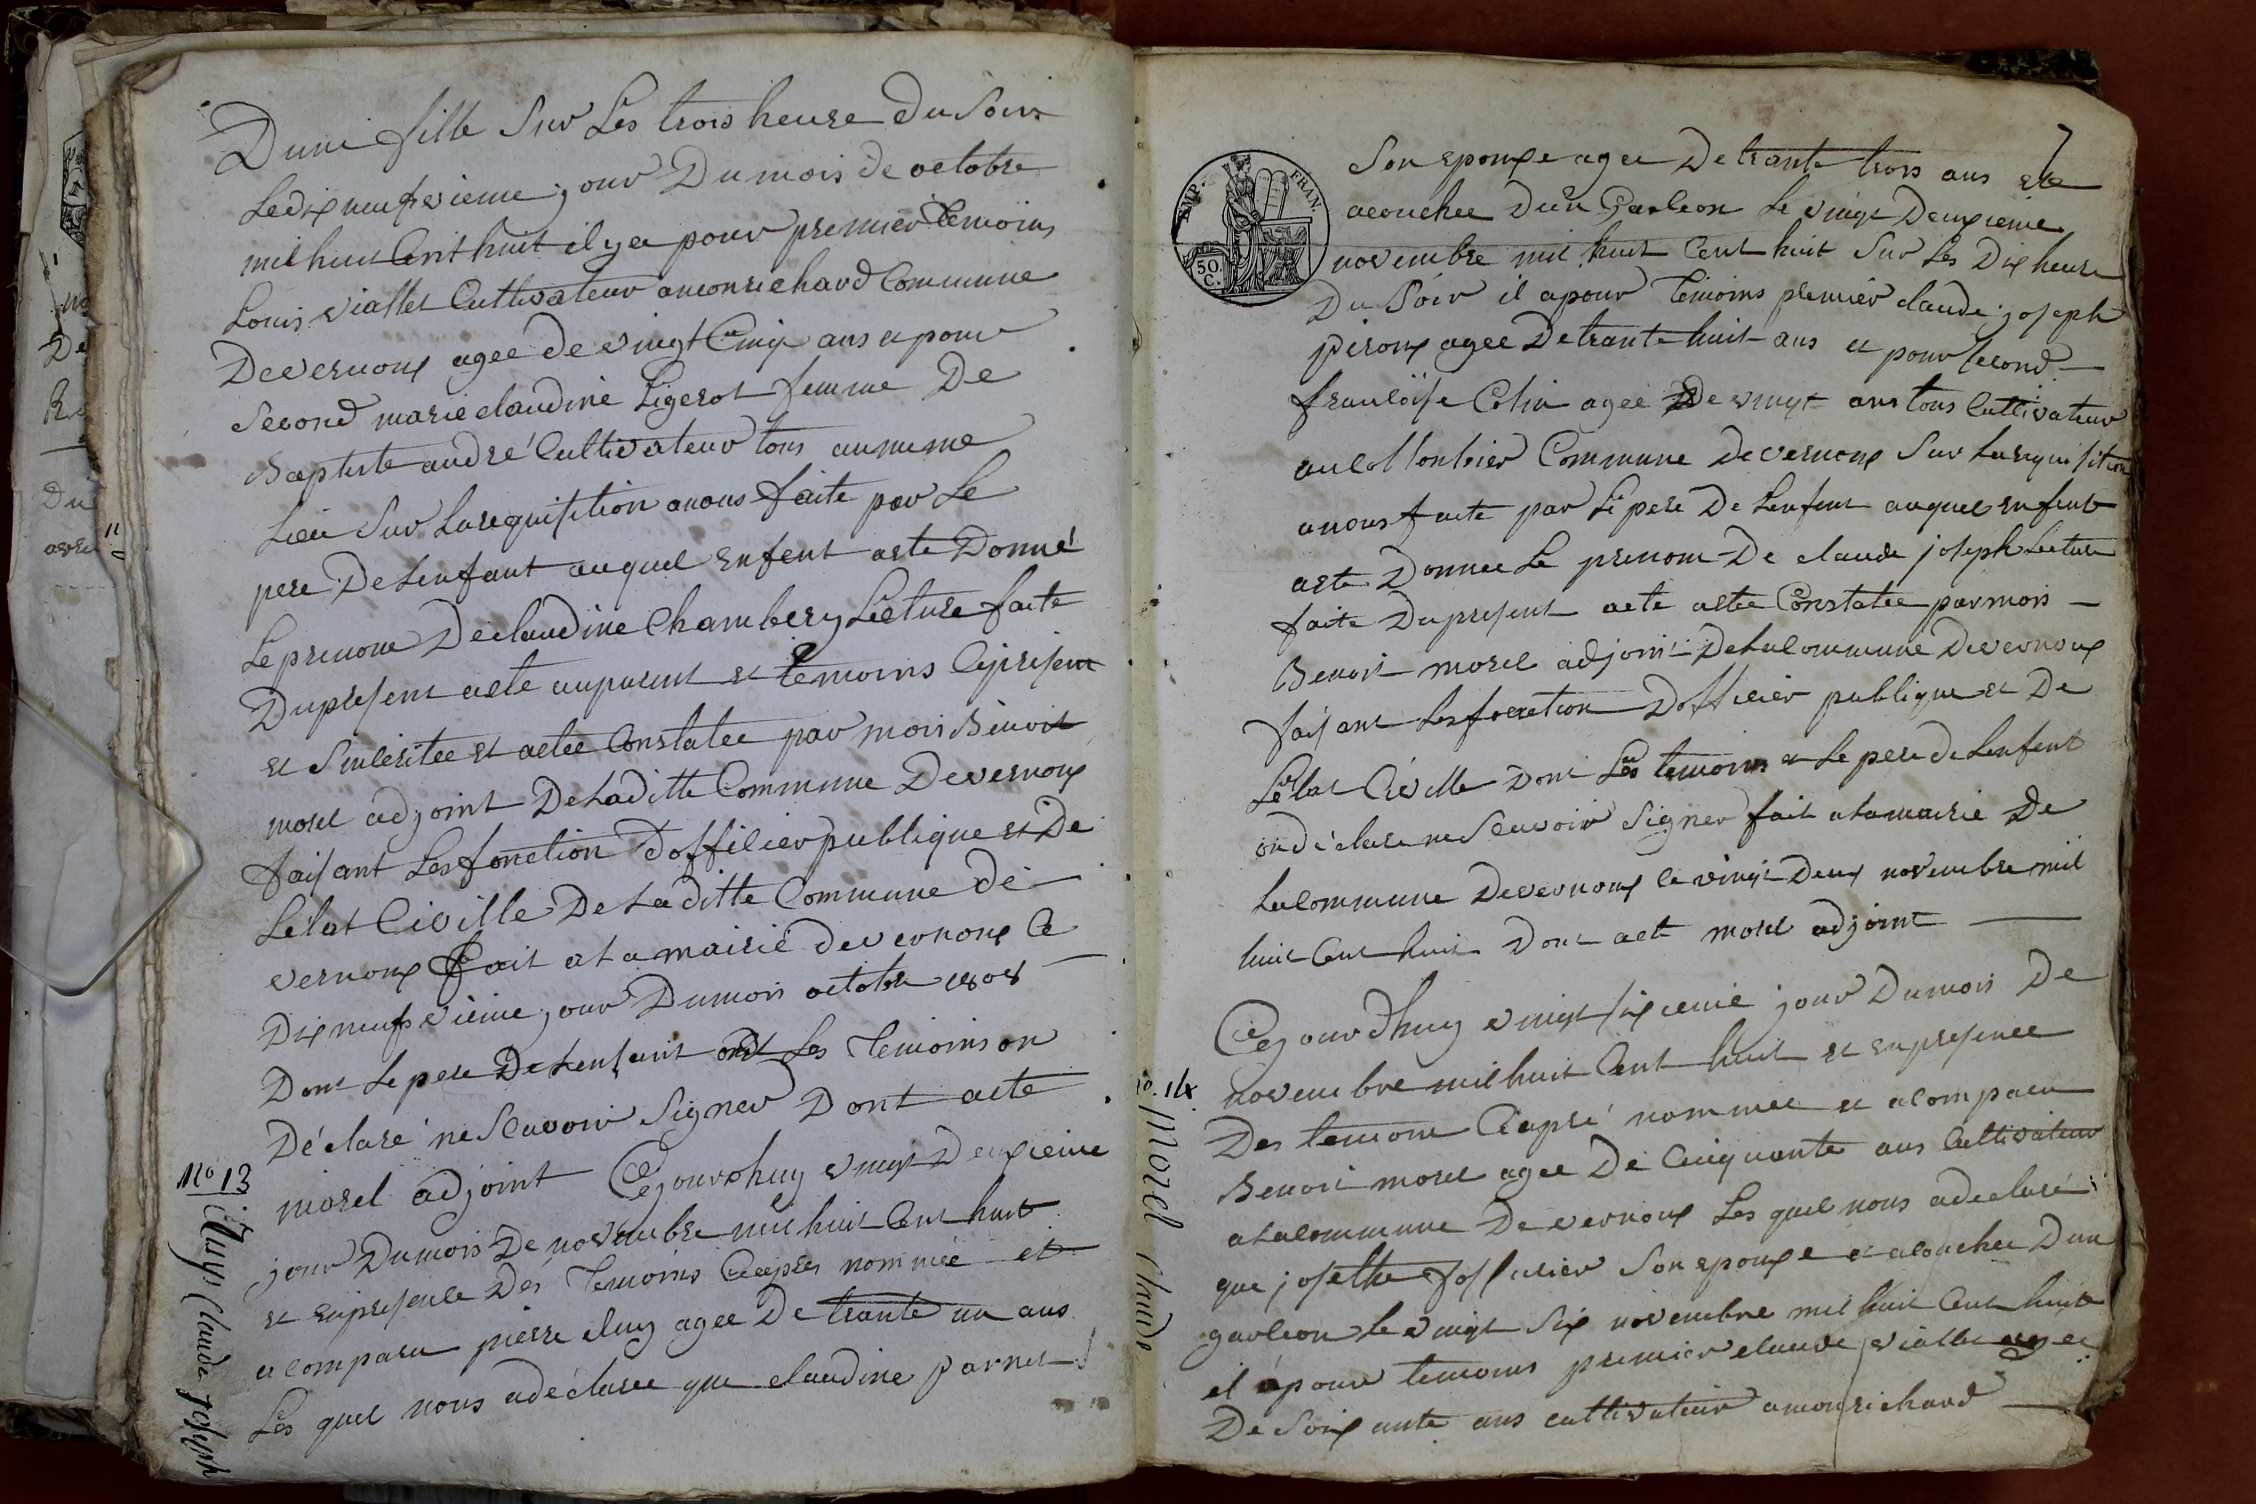 Dune fille Sur Les trois heure Du Soir
Ledix neufvieme jour Du mois de octobre
mil huit Cent huit il ya pour premier temoins
Louis viallet Cultivateur amonrichard Commune
Devernoux agee de vingt Cinq ans a pour
Second marie claudine Ligerot femme De
Baptiste andré Cultivateur tous au meme
Lieu Sur Larequisition anous faite par Le
pere DeLenfant auquel Enfent aete Donné
Leprenom Declaudine Chambery Lecture faite
Dupresent acte auparent et temoins Cy present
et Sinceritee et actee Constatee par mois Benoit
morel adjoint DeLaditte Commune Devernoux
faisant Lesfonction Dofficier publique et De
Létat Civille De Laditte Commune de
vernoux fait a La mairie devernoux Ce
Dix neufvieme jour Dumois octobre 1808
Dont Le pere DeLenfant et Les temoins on
Déclaré ne Scavoir Signer Dont acte
No 13
morel adjoint Cejourdhuy vingt Deuxieme
jour Dumois De novembre mil huit Cent huit
et enpresence Des temoins Cyaprés nommée et
acomparu pierre eluy agee De trante un ans
Les quel nous adeclaree que claudine parnet
Claude joseph
11
7
EMP. FRAN.
50. C.
Son epouse agee De trante trois ans est
acouchee Dun Garlcon Le vingt Deuxieme
novembre mil huit Cent huit Sur Les Dix heure
Du Soir il apour temoins premier claude joseph
piroux agee Detrante huit ans et pour second
francoise Colin agee De vingt ans tous Cultivateur
au Collonbier Commune Devernoux Sur Larequisition
anous faite par Le pere De Lenfent auquel enfent
aete Donnee Le prenom De claude joseph Lecture
faite Dupresent acte actee Constatee parmois
Benoit morel adjoint DeLaCommune Devernoux
faisant Lesfonction Dofficier publique et De
Létat Civille Dont Les temoins et Le pere de Lenfent
on déclaré ne Scavoir Signer fait a Lamairie De
LaCommune Devernoux Ce vingt Deux novembre mil
huit Cent huit Dont acte morel adjoint
Cejourdhuy vingt sixieme jour Dumois De
novembre mil huit Cent huit et en presence
no. 14
Des temoin Ciapré nommee et acomparu
Benoit morel agee De Cinquante ans Cultivateur
a LaCommune De vernoux Les quel nous adeclaré
que josette Son epouse et acouchee Dun
garlcon Le vingt Six novembre mil huit Cent huit
il apour temoins premier claude viallet agee
De Soixante ans cultivateur amonrichard
Morel Claude